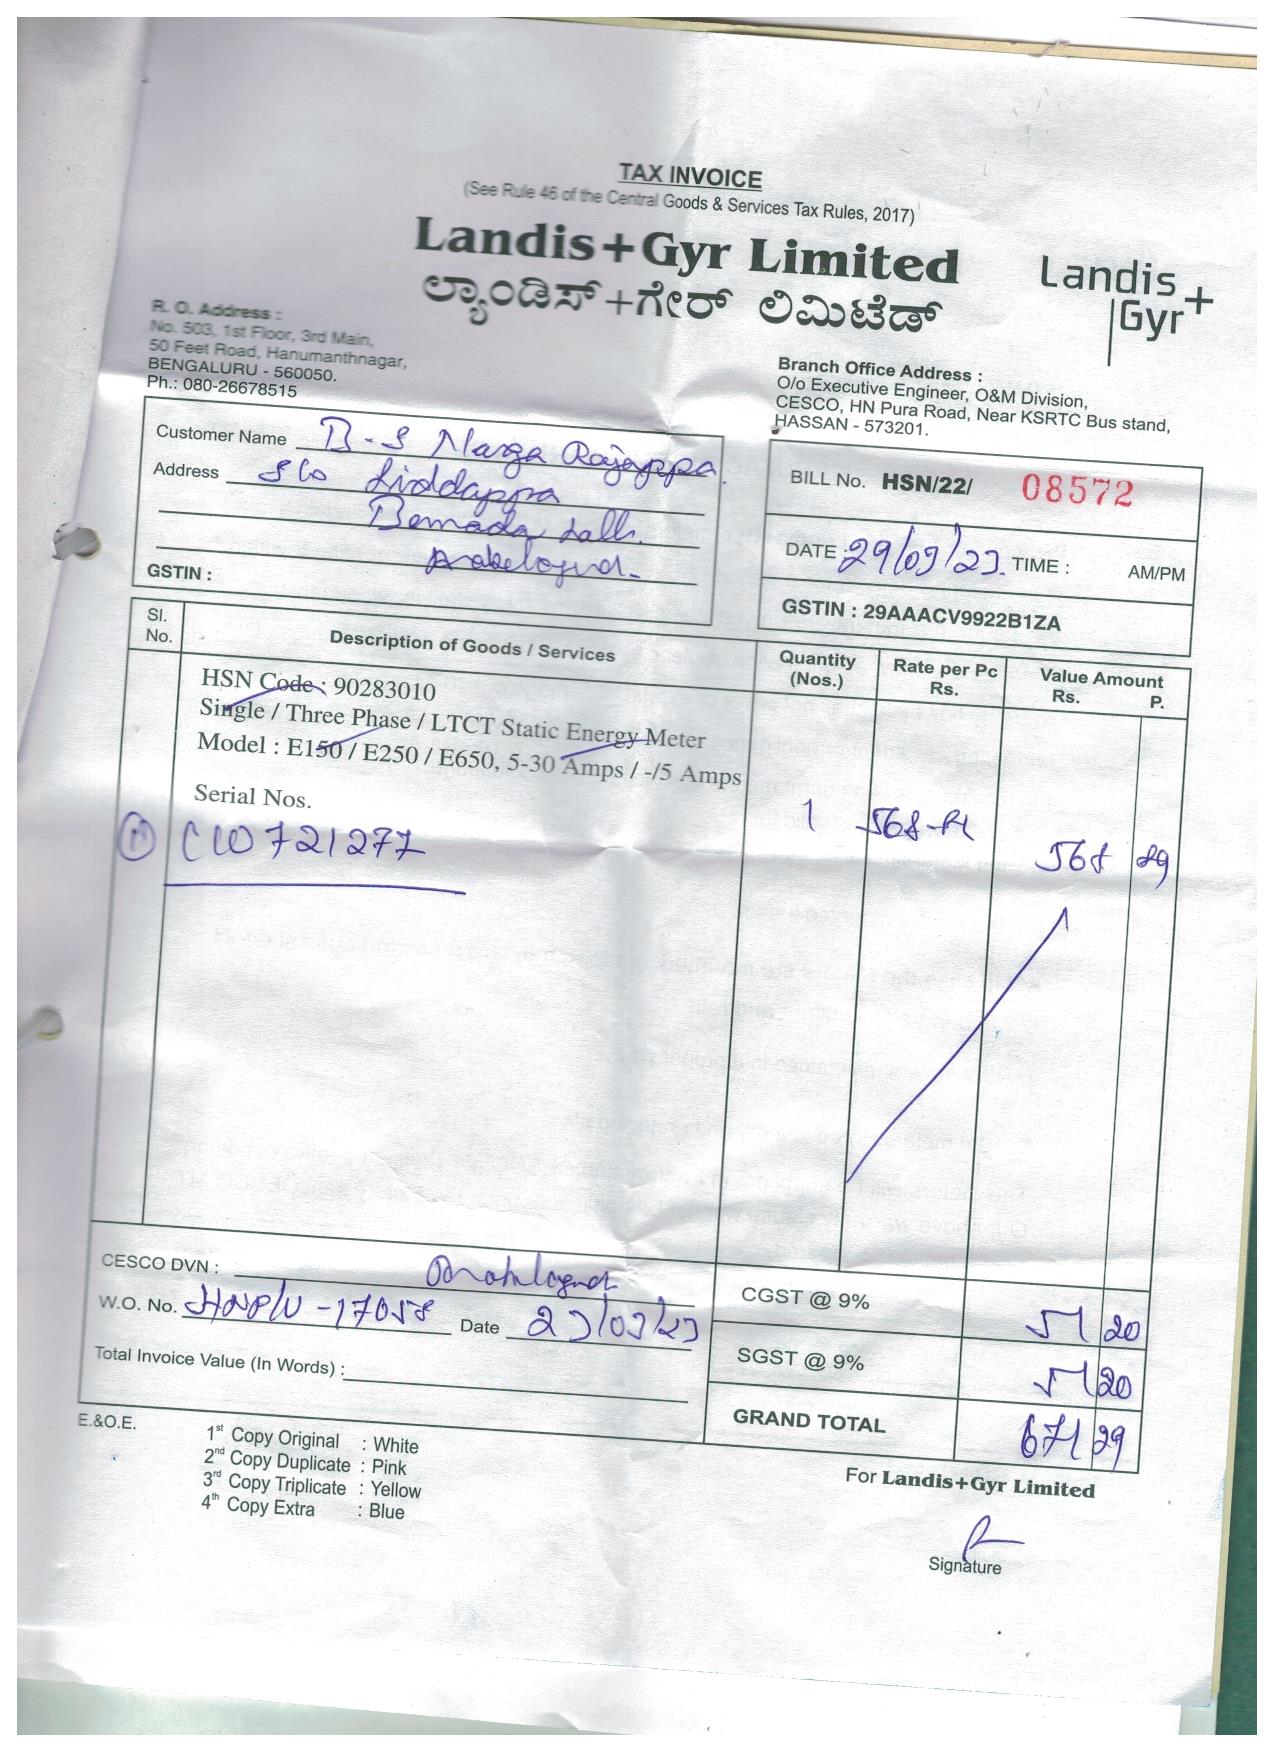 TAX INVOICE
(See Rule 46 of the Central Goods & Services Tax Rules, 2017)
Landis+Gyr Limited
ಲ್ಯಾಂಡಿಸ್+ಗೇರ್ ಲಿಮಿಟೆಡ್
Landis
Gyr+
R. O. Address :
No. 503, 1st Floor, 3rd Main,
50 Feet Road, Hanumanthnagar,
BENGALURU - 560050.
Ph.: 080-26678515
Branch Office Address :
O/o Executive Engineer, O&M Division,
CESCO, HN Pura Road, Near KSRTC Bus stand,
HASSAN - 573201.
Customer Name B-S Rajappa
Address S/o
GSTIN :
BILL No. HSN/22/ 08572
DATE : 29/03/23 TIME : AM/PM
GSTIN : 29AAACV9922B1ZA
Sl. No. Description of Goods / Services Quantity (Nos.) Rate per Pc Rs. Value Amount Rs. P.
HSN Code : 90283010
Single / Three Phase / LTCT Static Energy Meter
Model : E150 / E250 / E650, 5-30 Amps / -/5 Amps
Serial Nos.
1) 721277 1 568 568 89
CESCO DVN :
W.O. No. -17058 Date 23/03/23
Total Invoice Value (In Words) :
CGST @ 9% 51 20
SGST @ 9% 51 20
GRAND TOTAL 671 29
E.&O.E.
1st Copy Original : White
2nd Copy Duplicate : Pink
3rd Copy Triplicate : Yellow
4th Copy Extra : Blue
For Landis+Gyr Limited
Signature